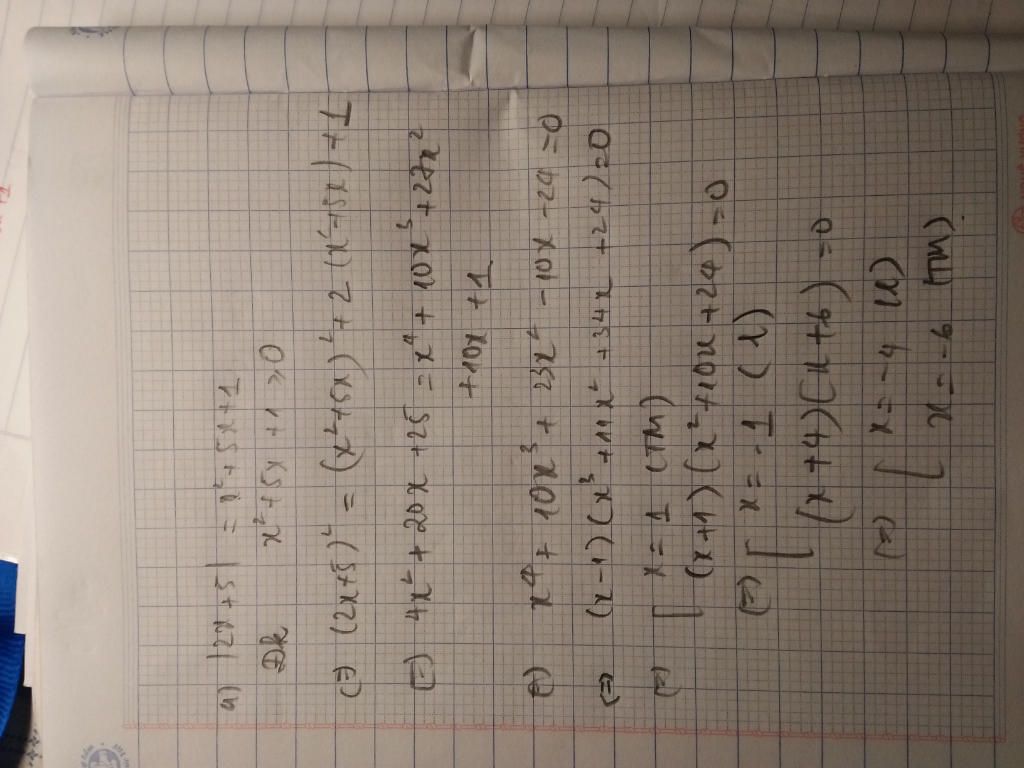 a) |2x+5| = x² + 5x + 1
Đk x² + 5x + 1 ≥ 0
(=) (2x+5)² = (x²+5x)² + 2(x²+5x) + 1
(=) 4x² + 20x + 25 = x⁴ + 10x³ + 27x²
+10x + 1
(=) x⁴ + 10x³ + 23x² - 10x - 24 = 0
(=) (x-1)(x³ + 11x² + 34x + 24) = 0
(=) [ x = 1 (TM)
(x+1)(x² + 10x + 24) = 0
(=) [ x = -1 (l)
(x+4)(x+6) = 0
(=) [ x = -4 (l)
x = -6 (TM).